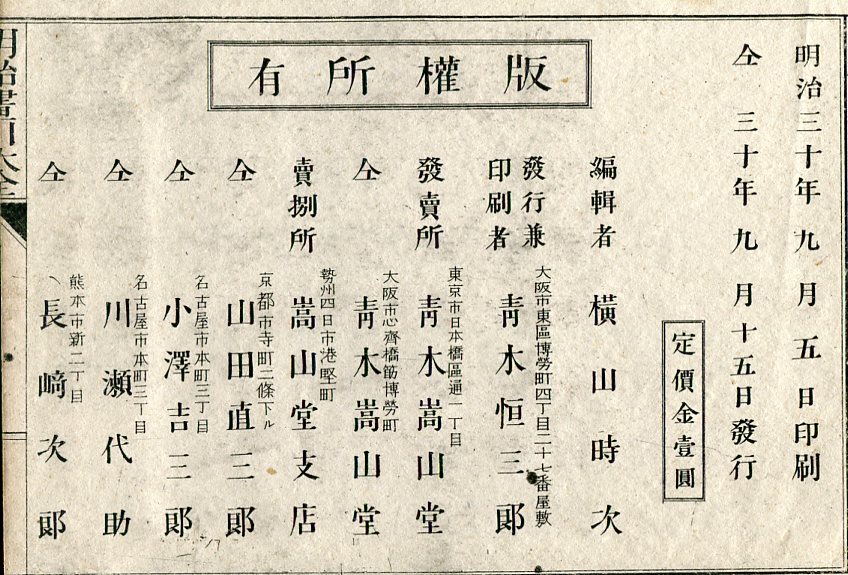 明治三十年九月五日印刷
仝三十年九月十五日發行
定價金壹圓
版權所有
編輯者 橫山時次
發行兼印刷者 大阪市東區博勞町四丁目二十七番屋敷 靑木恒三郞
發賣所 東京市日本橋區通一丁目 靑木嵩山堂
仝 大阪市心齊橋筋博勞町 靑木嵩山堂
賣捌所 勢州四日市港竪町 嵩山堂支店
仝 京都市寺町二條下ル 山田直三郞
仝 名古屋市本町三丁目 小澤吉三郞
仝 名古屋市本町三丁目 川瀨代助
仝 熊本市新二丁目 長﨑次郞
明治畫引大全